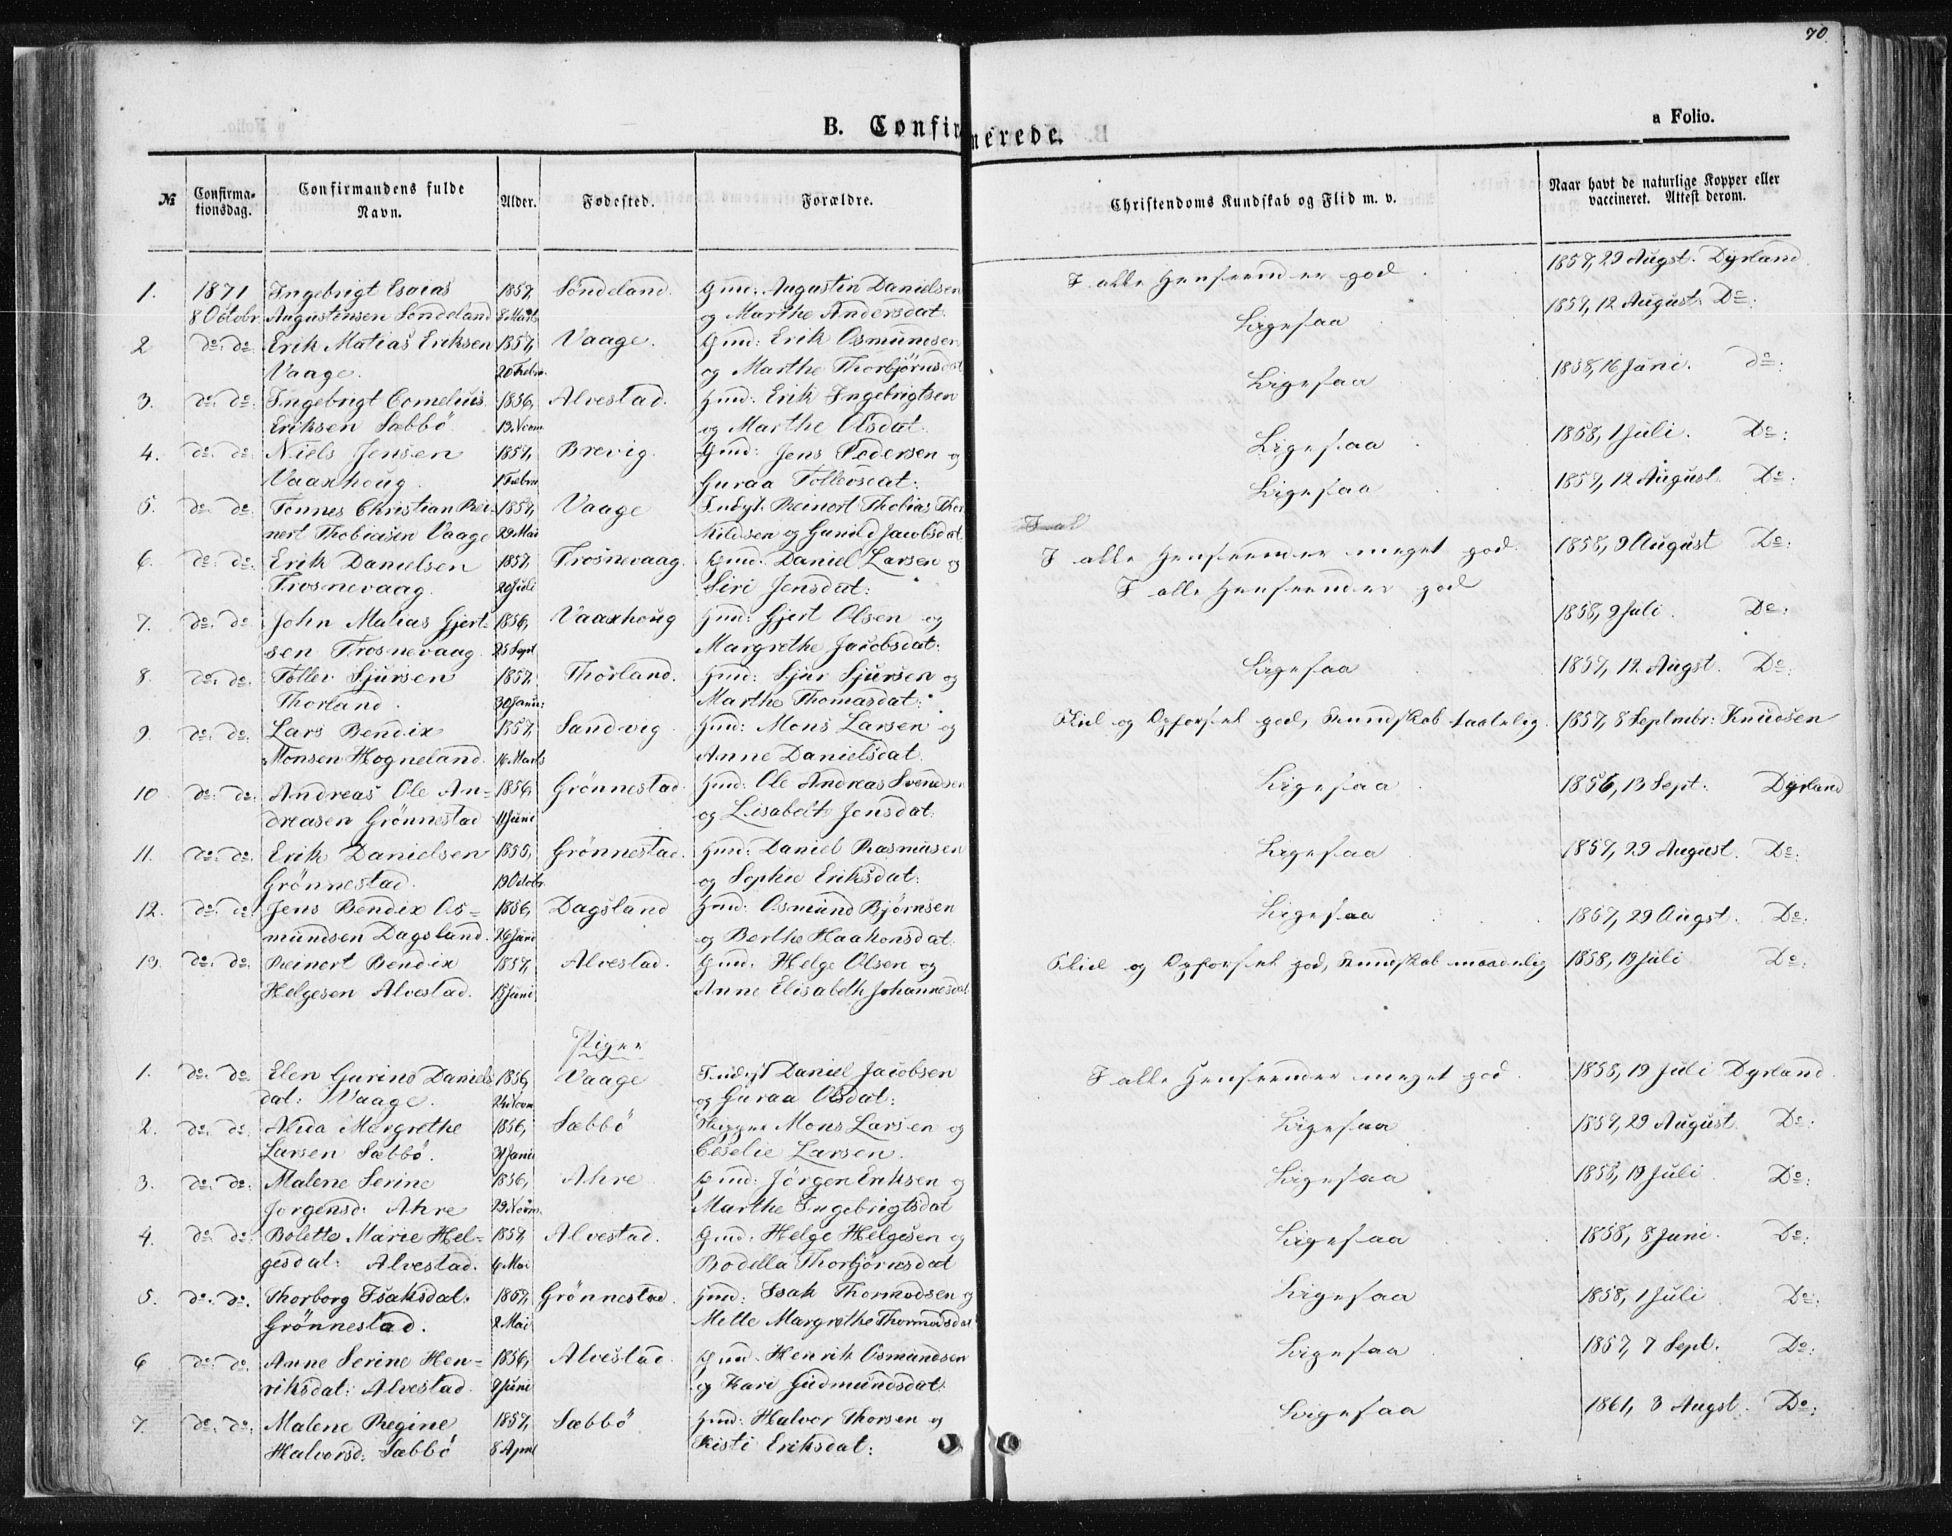 70.
B. Confirmerede.
a Folio.
№ Confirmationsdag. Confirmandens fulde Navn. Alder. Fødested. Forældre. Christendoms Kundskab og Flid m. v. Naar havt de naturlige Kopper eller vaccineret. Attest derom.
1. 1871 Ingebrigt Esaias 1857, Søndeland. Gmd: Augustin Danielsen I alle Henseender god 1857, 29 Augst. Dyrland
8 Octobr. Augustensen Søndeland 8 Marts og Marthe Andersdat:
2 do: do: Erik Matias Eriksen 1857, Vaage. Gmd: Erik Osmundsen Ligesaa 1857, 12 August. Do:
Vaage. 20 Febr. og Marthe Thorbjørnsdat
3. do: do: Ingebrigt Cornelius 1856, Alvestad. Gmd: Erik Ingebrigtsen Ligesaa 1858, 16 Juni. do:
Eriksen Sæbbö 19 Novm og Marthe Olsdat.
4. do: do: Niels Jensen 1857, Brevig. Gmd: Jens Pedersen og Ligesaa 1858, 1 Juli. Do:
Vaaxhoug. 1 Febru Guraa Tollevsdat:
5. do: do: Tønnes Christian Rei- 1857, Vaage Indst. Reinert Thobias Thor Ligesaa 1857, 12 August. Do:
nert Thobiasen Vaage 29 Mai kildsen og Gunild Jacobsdat.
6. do: do: Erik Danielsen 1857, Trosnevaag. Gmd. Daniel Larsen og I alle Henseender meget god. 1858, 9 August Do:
Trosnevaag. 20 Juli Siri Jensdat:
7. do: do: John Matias Gjert- 1856, Vaaxhoug Gmd: Gjert Olsen og I alle Henseender god 1858, 9 Juli. Do:
sen Trosnevaag 25 Sept Margrethe Jacobsdat:
8. do: do: Tollev Sjursen 1857, Thorland. Gmd: Sjur Sjursen og Ligesaa 1857, 12 Augst. Do:
Thorland. 30 Janu: Marthe Thomasdat:
9. do: do: Lars Bendix 1857, Sandvig. Gmd: Mons Larsen og Flid og Opførsel god, Kundskab taalelig. 1857, 8 Septmbr: Knudsen
Monsen Hogneland. 16 Marts Anne Danielsdat.
10. do: do: Andreas Ole An- 1856, Grönnestad. Gmd: Ole Andreas Svendsen Ligesaa 1856, 13 Sept. Dyrland
dreasen Grönnestad 11 Juni og Lisabeth Jensdat.
11. do: do: Erik Danielsen 1855, Grönnestad. Gmd: Daniel Rasmusen Ligesaa 1857, 29 August. Do:
Grönnestad. 19 Octobr. og Sophie Eriksdat:
12. do: do: Jens Bendix Os- 1856, Dagsland Gmd: Osmund Bjørnsen Ligesaa 1857, 29 Augst. Do:
mundsen Dagsland. 26 Juni og Berthe Haakonsdat.
13. do: do: Reinert Bendix 1857, Alvestad. Gmd: Helge Olsen og Flid og Opførsel god, Kundskab maadelig 1858, 19 Juli Do:
Helgesen Alvestad. 15 Juni Anne Elisabeth Johannesdat
Piger
1. do: do: Elen Gurine Daniels 1856, Vaage Indst Daniel Jacobsen I alle Henseender meget god. 1858, 19 Juli Dyrland.
dat: Vaage. 24 Novm og Guraa Olsdat:
2. do: do: Anna Margrethe 1856, Sæbbö Skipper Mons Larsen og Ligesaa 1857, 29 August. Do:
Larsen Sæbbö. Larsen.
3. do: do: Malene Serine 1856, Ahre. Gmd: Jørgen Eriksen og Ligesaa 1858, 19 Juli. Do:
Jørgensd: Ahre 29 Novm. Marthe Ingebrigtsdat
4. do: do: Bolette Marie Hel- 1857, Alvestad. Gmd: Helge Helgesen og Ligesaa 1858, 8 Juni. Do:
gesdat: Alvestad. 6 Mai Bodella Thorbjørnsdat
5. do: do. Thorborg Isaksdat: 1857, Grönnestad. Gmd: Isak Thormodsen og Ligesaa 1858, 1 Juli Do:
Grönnestad. 2 Mai Mette Margrethe Thormodsdat
6 do: do: Anne Serine Hen- 1856, Alvestad. Gmd. Henrik Osmundsen Ligesaa 1857, 7 Sept. Do:
riksdat: Alvestad. 9 Juni og Kari Gudmundsdat:
7. do: do: Malene Regine 1857, Sæbbö Gmd: Halvor Thorsen og Ligesaa 1861, 3 Augst. Do:
Halvorsd: Sæbbö 8 April Kisti Eriksdat: